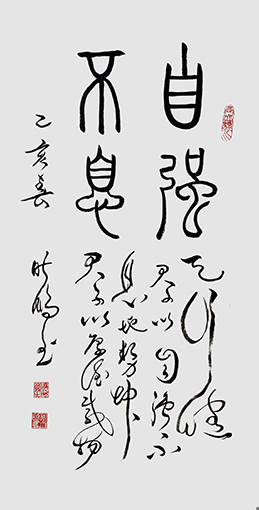 自强
不息
天行健
君子以自强不
息地势坤
君子以厚德载物
己亥春